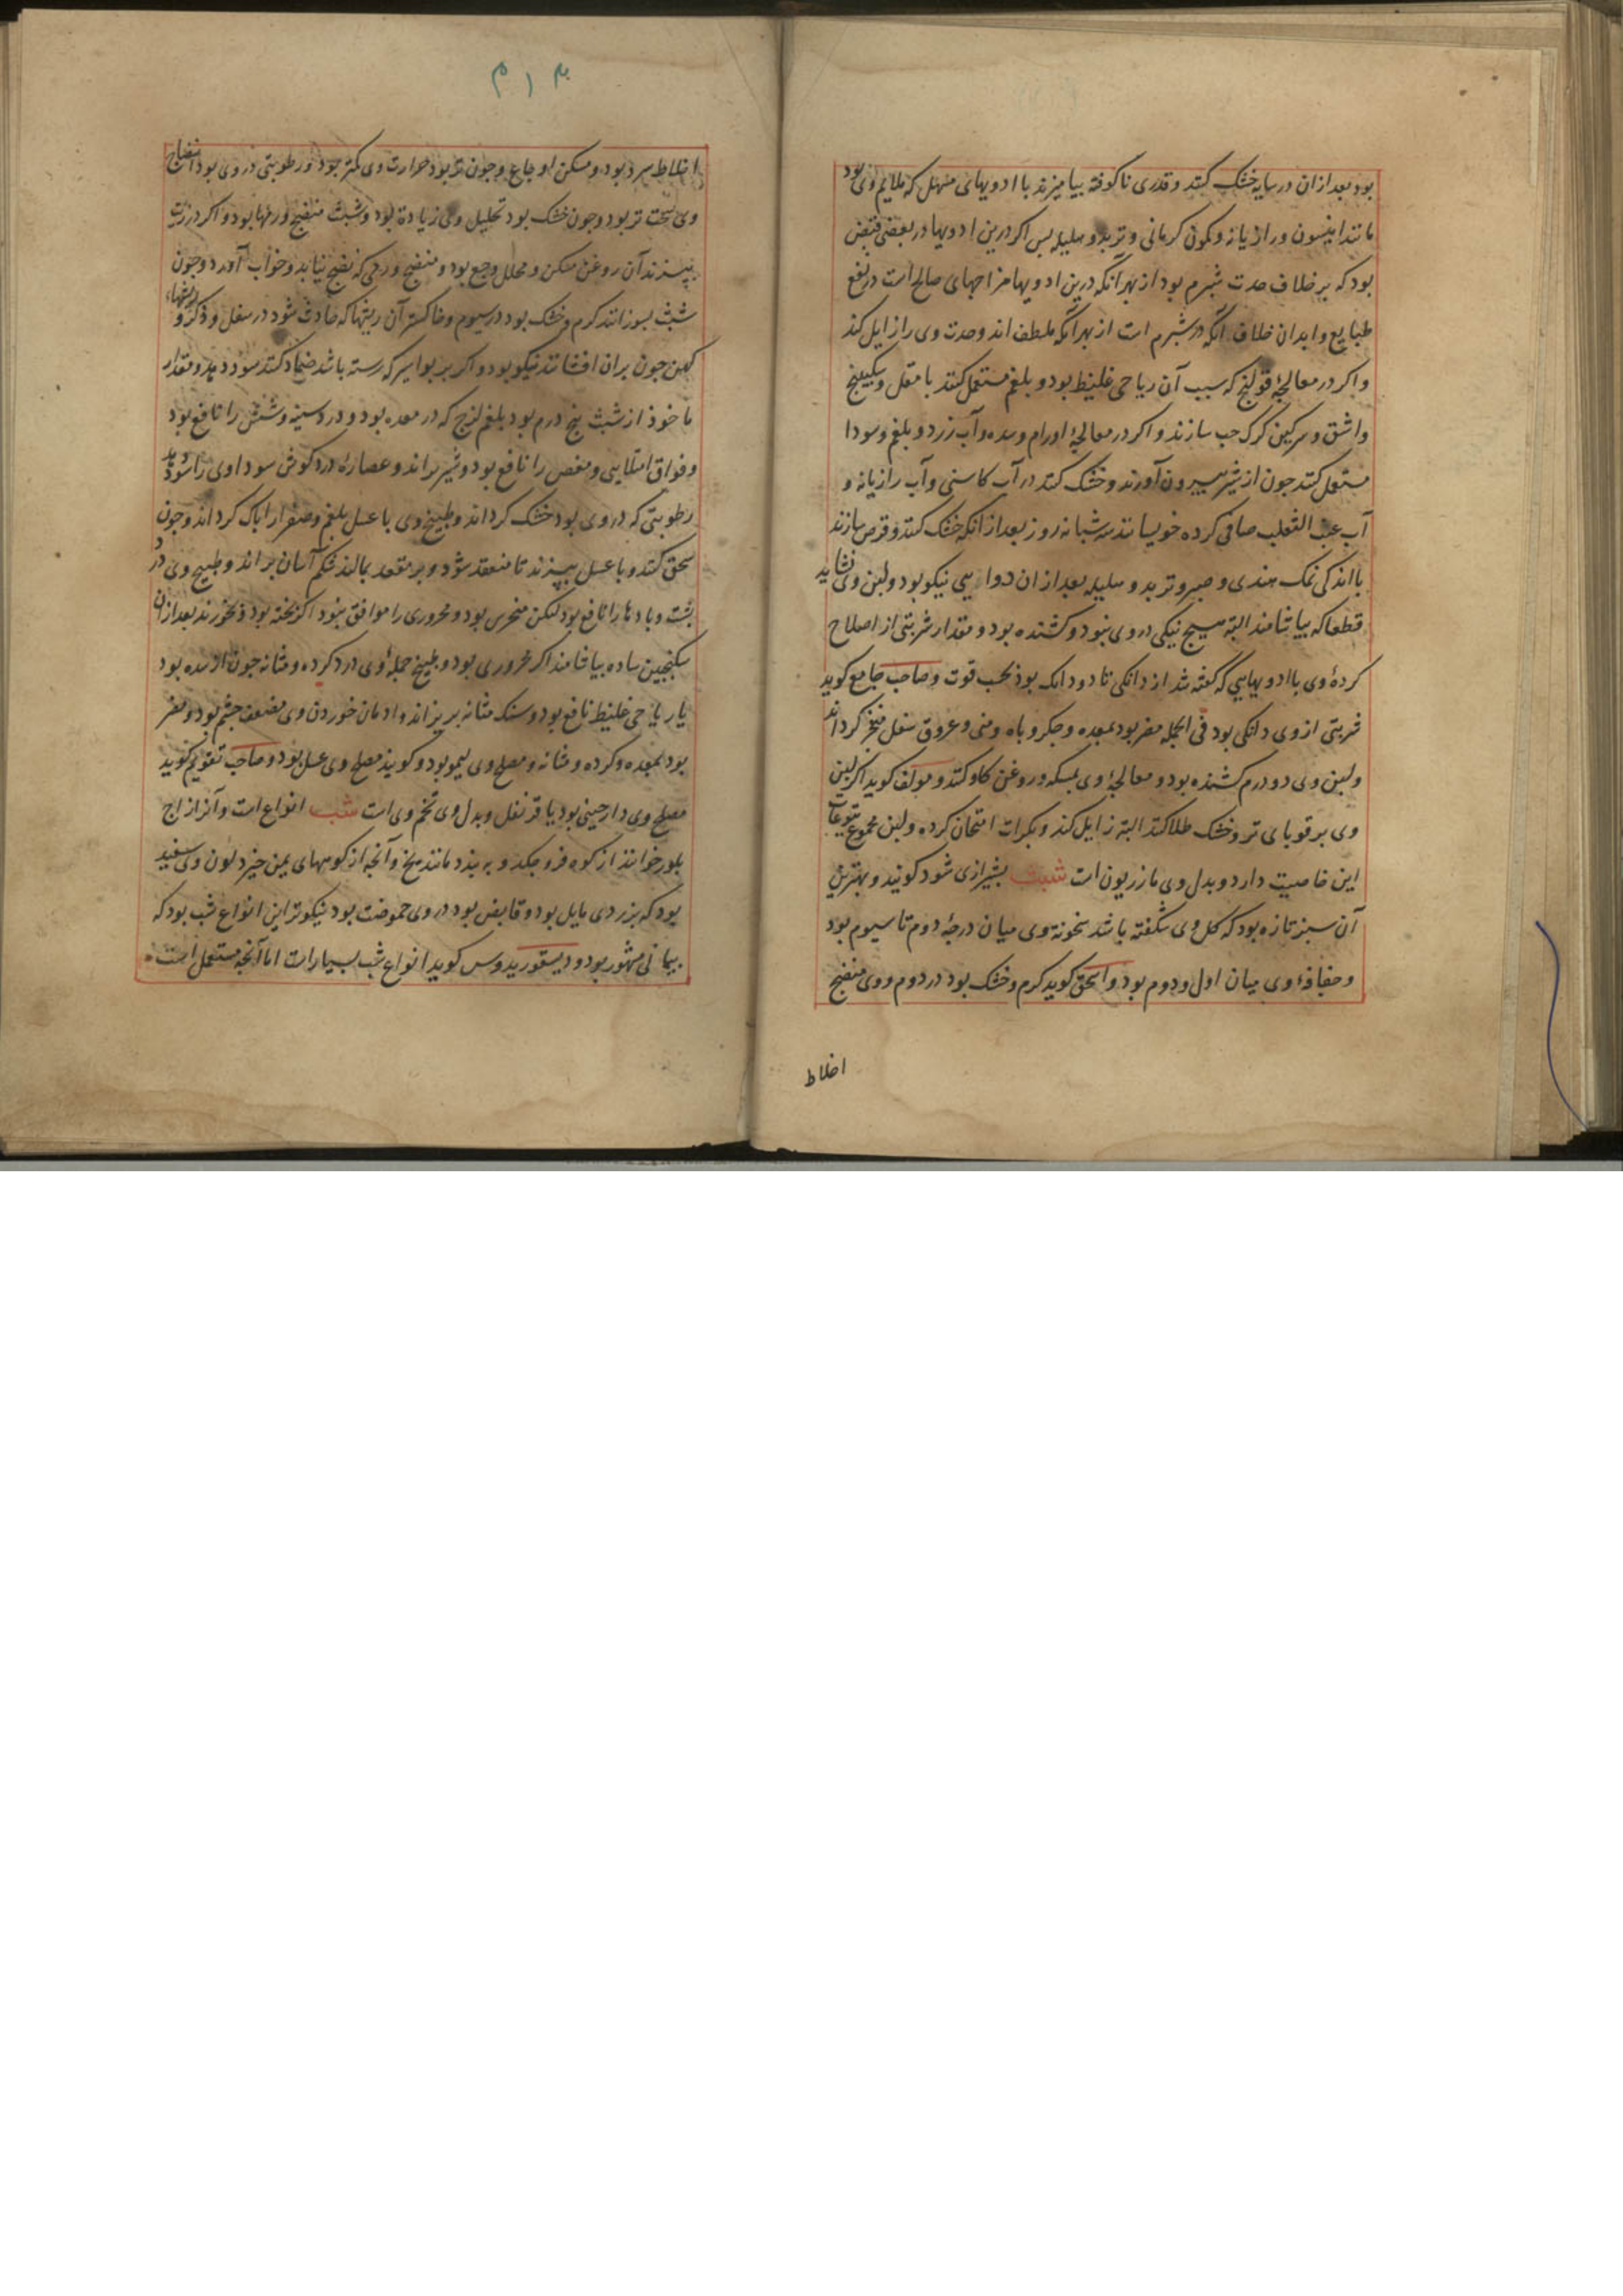 بود بعد از ان در سایه خشک کنند و قدری ناکوفته بیامیزند با ادویهای مسهل که ملایم وی بود
مانند انیسون و رازیانه و کمون کرمانی و تربد و هلیله بس اکر درین ادویها در بعضی قبض
بود که بر خلاف حدت شبرم بود از بهر آنکه درین ادویها مزاجهای صالح است در نفع
طبایع و ابدان خلاف آنکه در شبرم است از بهر آنکه ملطف اند و حدت وی را زایل کند
و اکر در معالجهٔ قولنج که سبب آن ریاحی غلیظ بود و بلغم مستعمل کنند با مقل و سکبینج
و اشق و سرکین کرک حب سازند و اکر در معالجهٔ اورام و سده و آب زرد و بلغم و سودا
مستعمل کنند جون از شیر بیرون آورند و خشک کنند در آب کاسنی و آب رازیانه و
آب عنب الثعلب صافی کرده خویسانند سه شبانه روز بعد از انکه خشک کنند و قرص سازند
با اندکی نمک هندی و صبر و تربد و هلیله بعد از ان دوایی نیکو بود و لبن وی نشاید
قطعا که بیاشامند البته هیچ نیکی در وی نبود و کشنده بود و مقدار شربتی از اصلاح
کردهٔ وی با ادویهایی که کفته شد از دانکی تا دو دانک بود بحسب قوت و صاحب جامع کوید
شربتی از وی دانکی بود فی الجمله مضر بود بمعده و جکر و باه و منی و عروق سفل منفجر کرداند
و لبن وی دو درم کشنده بود و معالجهٔ وی بمسکه و روغن کاو کنند و مولف کوید اکر لبن
وی بر قوبای تر و خشک طلا کنند البته زایل کند و بکرات امتحان کرده و لبن مجموع یتوعات
این خاصیت دارد و بدل وی مازریون است شبث بشیرازی شود کویند و بهترین
آن سبز تازه بود که کل وی شکفته باشد سخونة وی میان درجهٔ دوم تا سیوم بود
و جفافهٔ وی میان اول و دوم بود و اسحق کوید کرم و خشک بود در دوم و وی منضج
اخلاط
۴۱۳
اخلاط سرد بود و مسکن اوجاع و جون تر بود حرارت وی کمتر بود و رطوبتی در وی بود انضاج
وی سخت تر بود و جون خشک بود تحلیل وی زیادة بود و شبث منضج ورمها بود و اکر در زیت
ببزند آن روغن مسکن و محلل وجع بود و منضج ورمی که نضج نیابد و خواب آورد و جون
شبث بسوزانند کرم و خشک بود در سیوم و خاکستر آن ریشها که حادث شود در سفل و ذکر و ریشهاء
کهن جون بران افشانند نیکو بود و اکر بر بواسیر که رسته باشد ضماد کنند سود دهد و مقدار
ماخوذ از شبث پنج درم بود بلغم لزج که در معده بود و درد سینه و شش را نافع بود
و فواق امتلایی و مغص را نافع بود و شیر براند و عصارهٔ درد کوش سوداوی را سود دهد
رطوبتی که در وی بود خشک کرداند و طبیخ وی با عسل بلغم و صفرا را پاک کرداند و جون
سحق کنند و با عسل ببزند تا منعقد شود و بر مقعد بمالند شکم آسان براند و طبیخ وی درد
پشت و بادها را نافع بود لیکن مبخر بود و محروری را موافق نبود اکر بخته بود و بخورند بعد از ان
سکنجبین ساده بیاشامند اکر محروری بود و طبیخ جملهٔ وی درد کرده و مثانه جون از سده بود
یا ریاحی غلیظ نافع بود و سنک مثانه بریزاند و ادمان خوردن وی مضعف جشم بود و مضر
بود بمعده و کرده و مثانه و مصلح وی لیمو بود و کویند مصلح وی عسل بود و صاحب تقویم کوید
مصلح وی دارجینی بود یا قرنفل و بدل وی تخم وی است شب انواع است و آنرا زاج
بلور خوانند از کوه فرو جکد و ببندد مانند یخ و آنجه از کوههای یمن خیزد لون وی سفید
بود که بزردی مایل بود و قابض بود در وی حموضت بود نیکوترین انواع شب بود که
بیمانی مشهور بود و دیسقوریدوس کوید انواع شب بسیار است اما آنجه مستعمل است